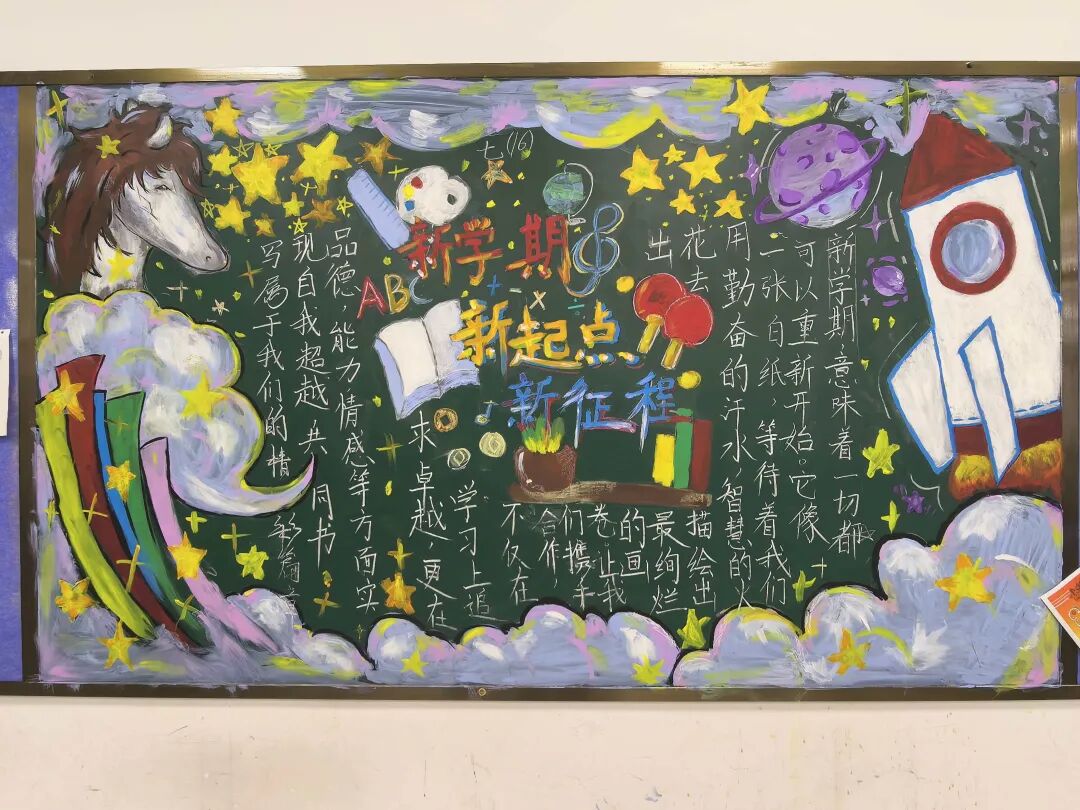 七(16)
新学期
ABC
新起点
新征程
新学期,意味着一切都
可以重新开始。它像
一张白纸,等待着我们
用勤奋的汗水,智慧的火
花去
出
描绘出
最绚烂
的画
卷。让我
们携手
合作,
不仅在
学习上追
求卓越
更在
品德,能力情感等方面实
现自我超越 共同书
写属于我们的精彩篇章